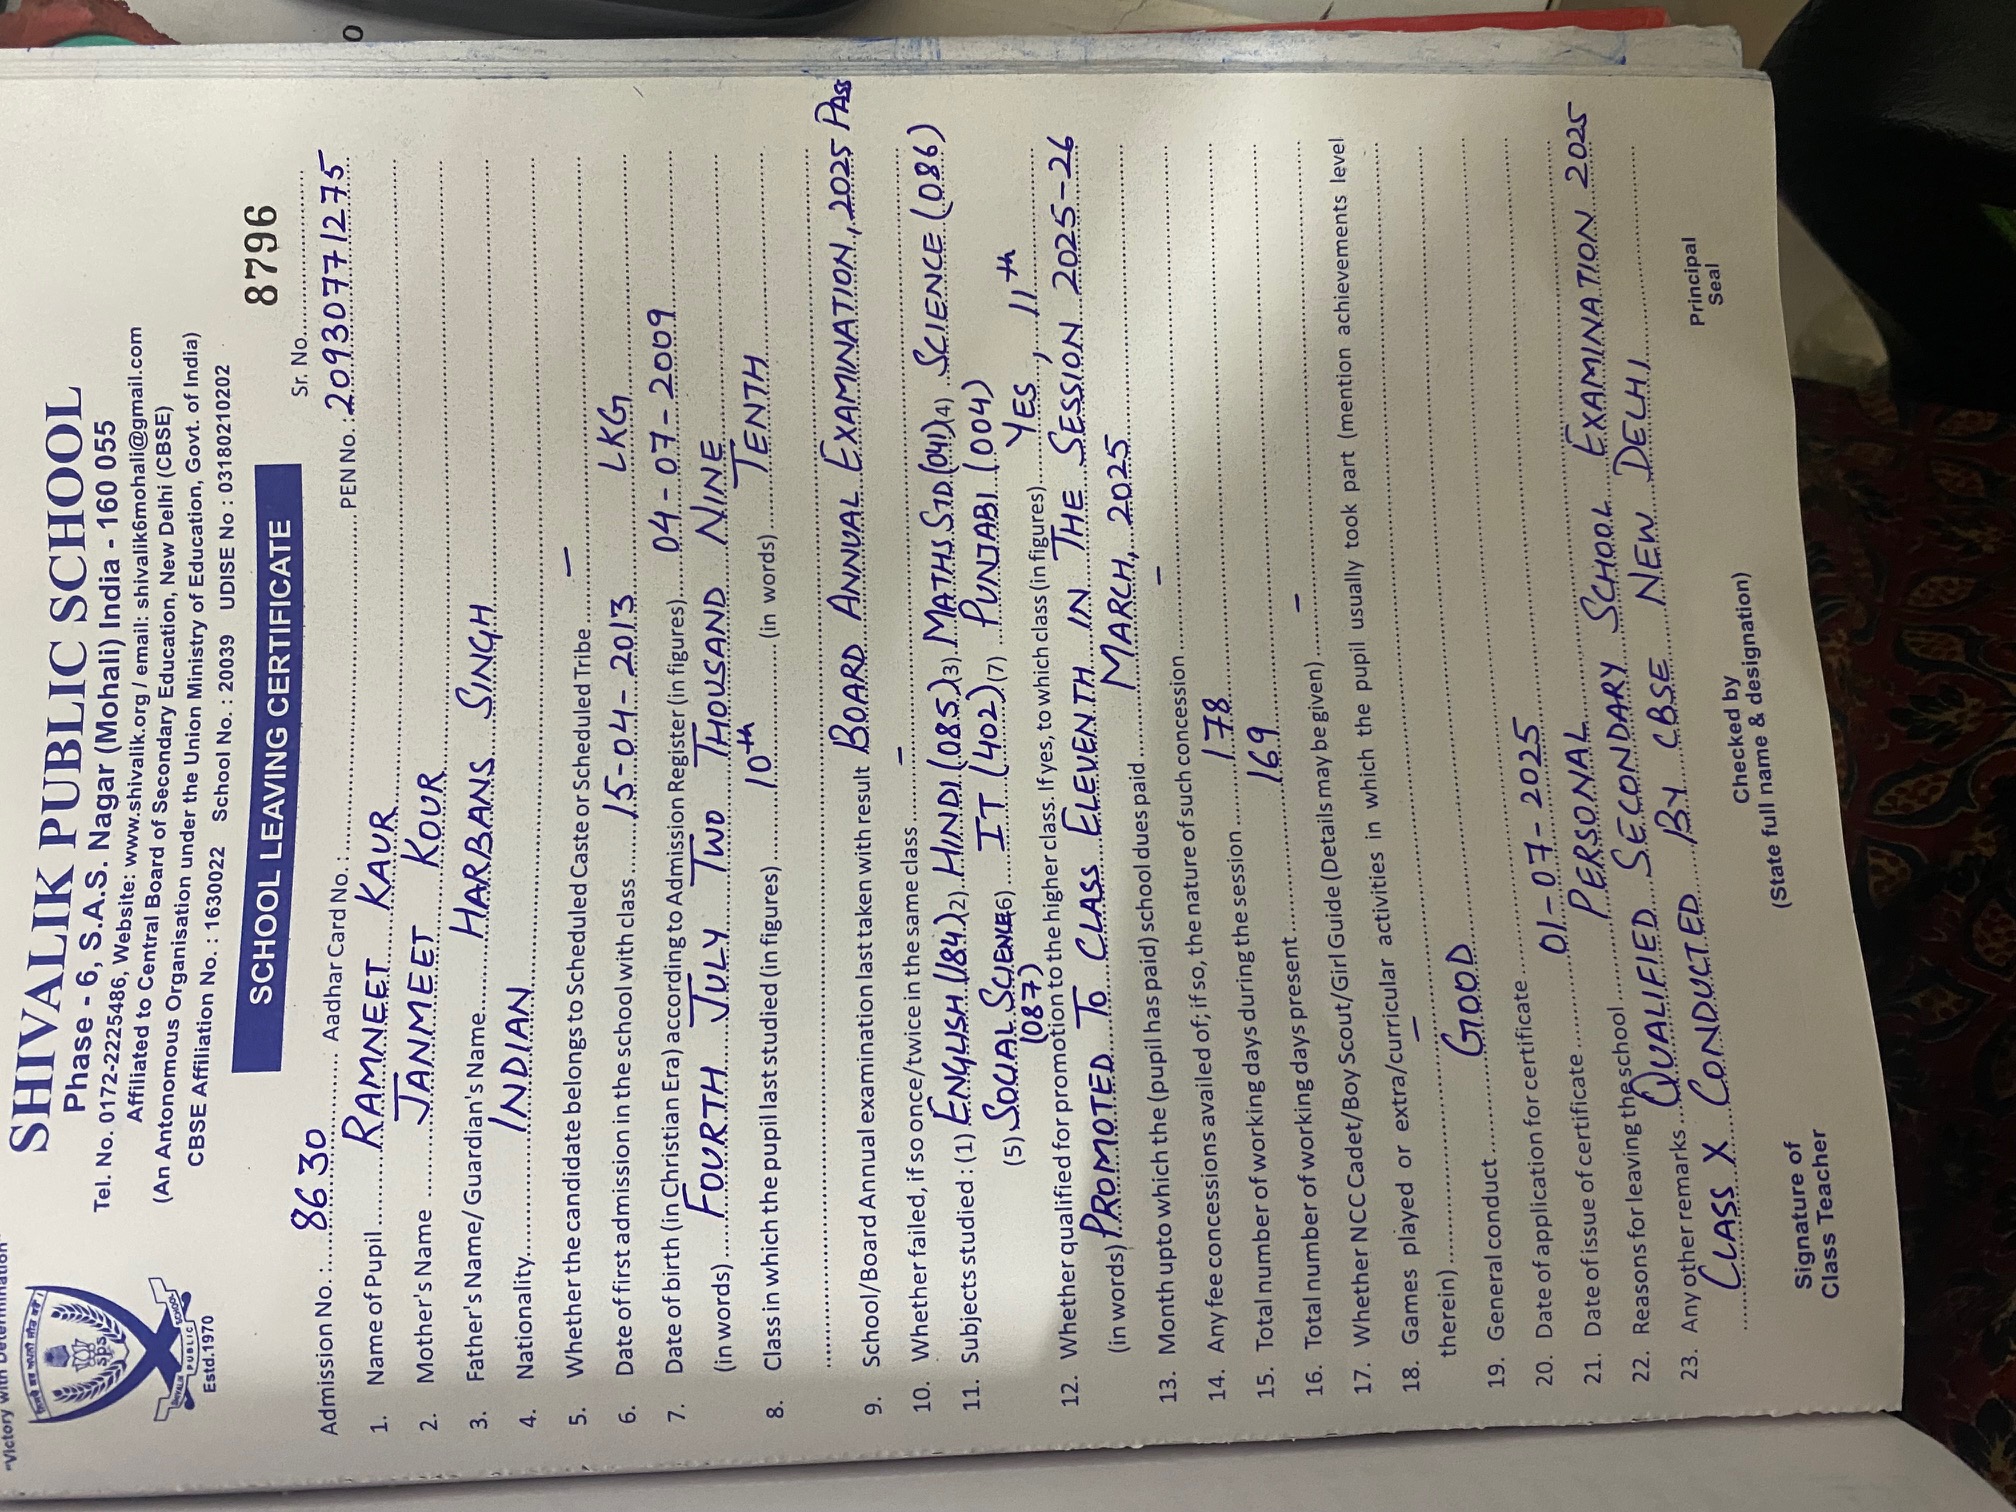 "Victory with Determination"
SHIVALIK PUBLIC SCHOOL
Phase - 6, S.A.S. Nagar (Mohali) India - 160 055
Tel. No. 0172-2225486, Website: www.shivalik.org / email: shivalik6mohali@gmail.com
Affiliated to Central Board of Secondary Education, New Delhi (CBSE)
(An Autonomous Organisation under the Union Ministry of Education, Govt. of India)
CBSE Affiliation No. : 1630022 School No. : 20039 UDISE No : 03180210202
SPS
SHIVALIK PUBLIC SCHOOL
Estd.1970
SCHOOL LEAVING CERTIFICATE
8796
Sr. No.
Admission No. : 8630 Aadhar Card No. : PEN No. : 20930771275
1. Name of Pupil RAMNEET KAUR
2. Mother's Name JANMEET KOUR
3. Father's Name/ Guardian's Name HARBANS SINGH
4. Nationality INDIAN
5. Whether the candidate belongs to Scheduled Caste or Scheduled Tribe –
6. Date of first admission in the school with class 15-04-2013 LKG
7. Date of birth (in Christian Era) according to Admission Register (in figures) 04-07-2009
(in words) FOURTH JULY TWO THOUSAND NINE
8. Class in which the pupil last studied (in figures) 10th (in words) TENTH
9. School/Board Annual examination last taken with result BOARD ANNUAL EXAMINATION, 2025 PASS
10. Whether failed, if so once/twice in the same class –
11. Subjects studied : (1) ENGLISH (184) (2) HINDI (085) (3) MATHS STD (041) (4) SCIENCE (086)
(5) SOCIAL SCIENCE (087) (6) IT (402) (7) PUNJABI (004)
12. Whether qualified for promotion to the higher class. If yes, to which class (in figures) YES, 11th
(in words) PROMOTED TO CLASS ELEVENTH IN THE SESSION 2025-26
13. Month upto which the (pupil has paid) school dues paid MARCH, 2025
14. Any fee concessions availed of; if so, the nature of such concession –
15. Total number of working days during the session 178
16. Total number of working days present 169
17. Whether NCC Cadet/Boy Scout/Girl Guide (Details may be given) –
18. Games played or extra/curricular activities in which the pupil usually took part (mention achievements level
therein) –
19. General conduct GOOD
20. Date of application for certificate
21. Date of issue of certificate 01-07-2025
22. Reasons for leaving the school PERSONAL
23. Any other remarks QUALIFIED SECONDARY SCHOOL EXAMINATION 2025
CLASS X CONDUCTED BY CBSE NEW DELHI
Signature of
Class Teacher
Checked by
(State full name & designation)
Principal
Seal